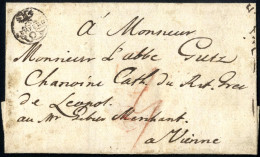 À Monsieur
Monsieur l'abbé Gutz
Chanoine Cath. du Ret. Grec
de Leopol.
au Mr Marchant
à Vienne